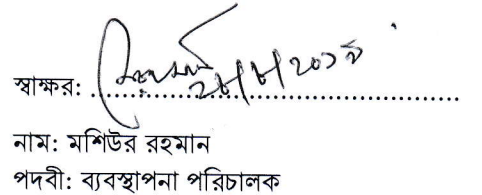 স্বাক্ষর: ........................................................
নাম: মশিউর রহমান
পদবী: ব্যবস্থাপনা পরিচালক